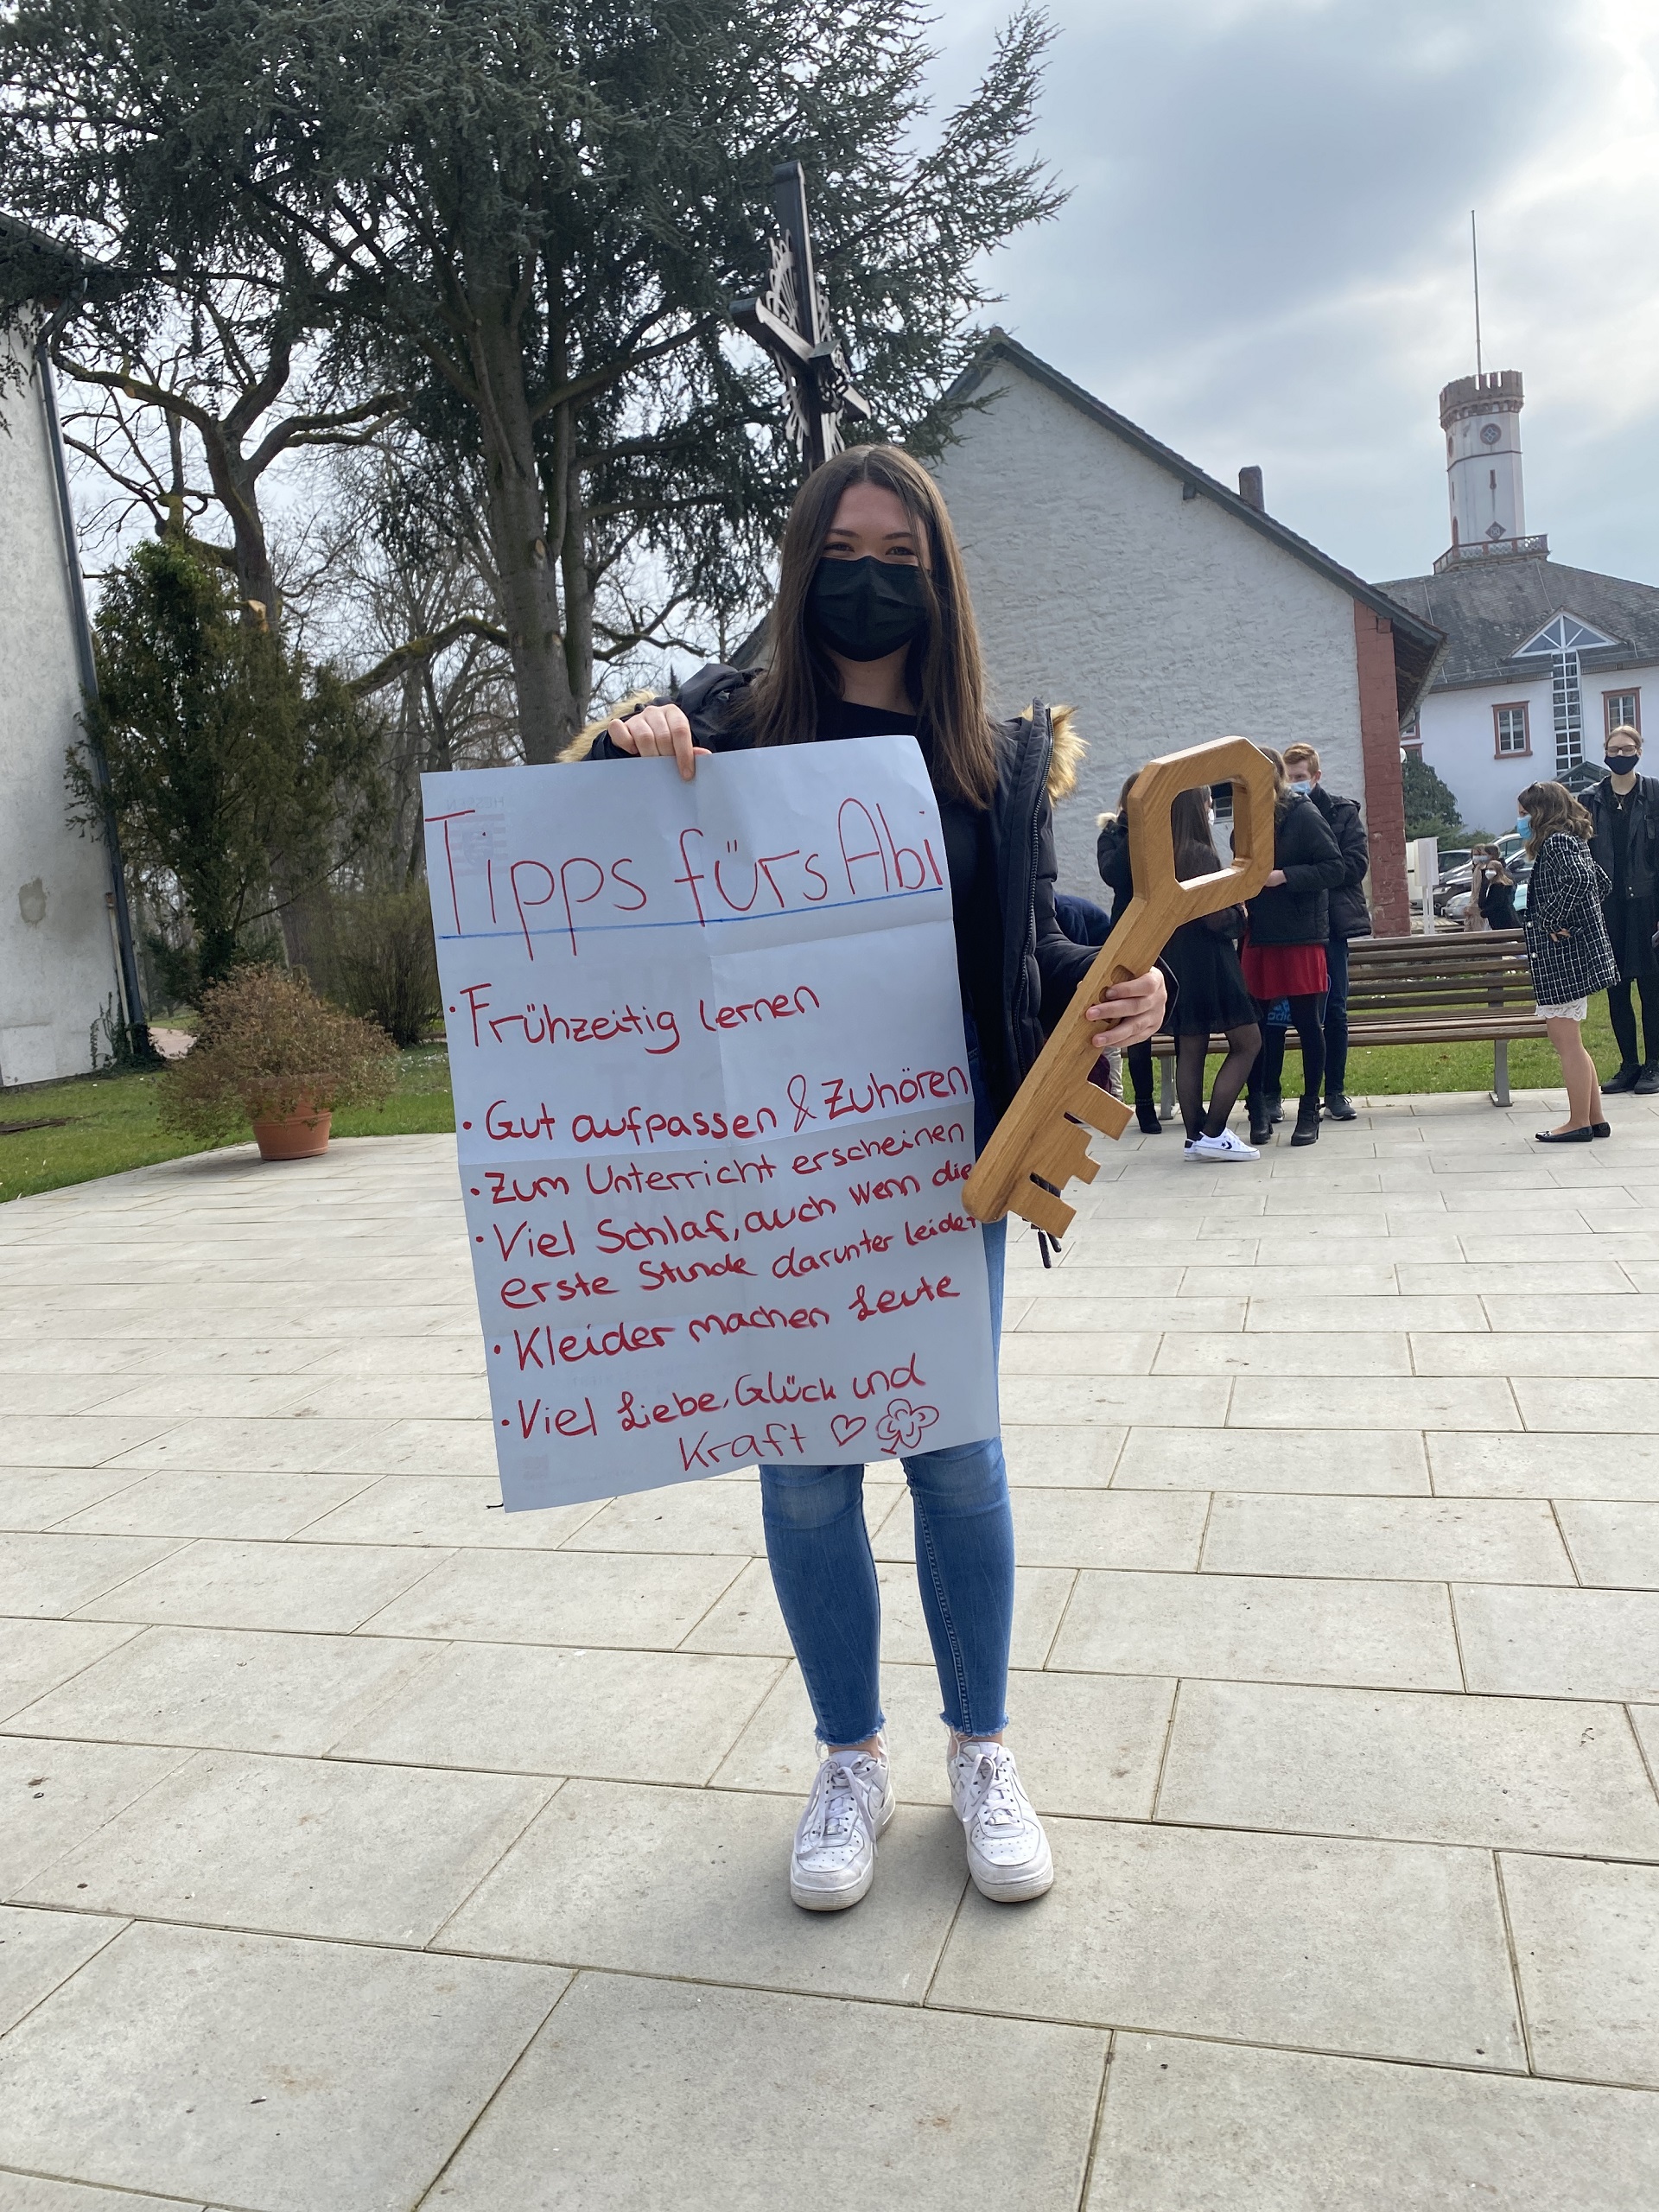 Tipps fürs Abi
• Frühzeitig lernen
• Gut aufpassen & Zuhören
• Zum Unterricht erscheinen
• Viel Schlaf, auch wenn die
erste Stunde darunter leidet
• Kleider machen Leute
• Viel Liebe, Glück und
Kraft
adidas